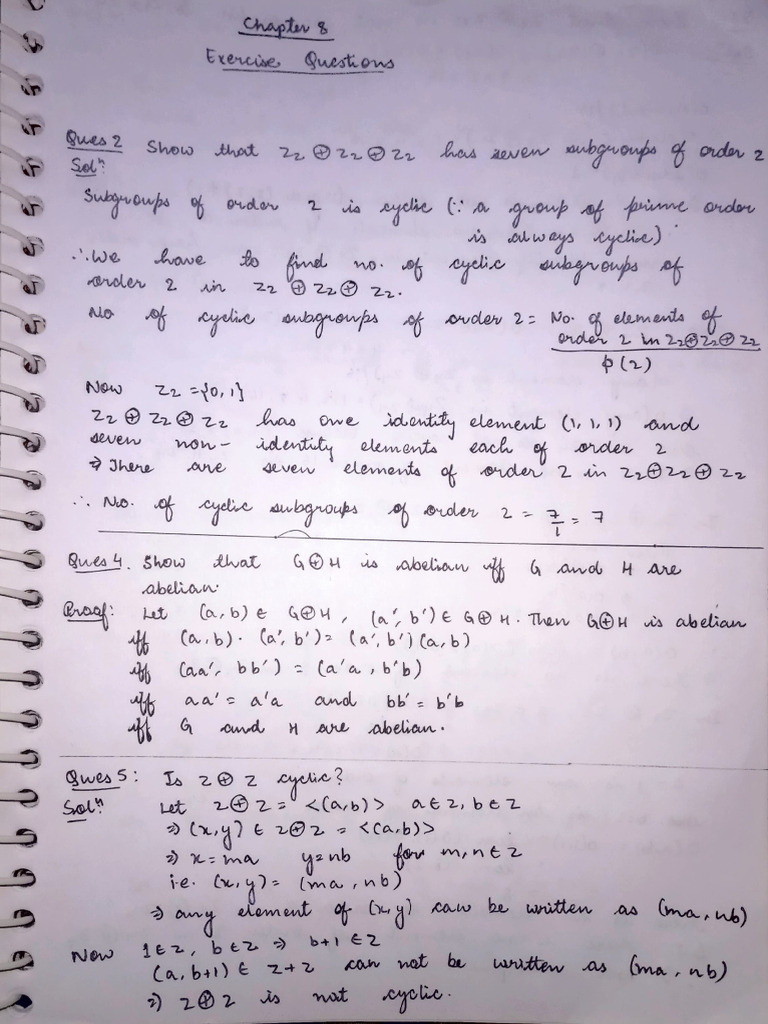 Chapter 8
Exercise Questions
Ques 2 Show that Z2 ⊕ Z2 ⊕ Z2 has seven subgroups of order 2
Solⁿ:
Subgroups of order 2 is cyclic (∵ a group of prime order
is always cyclic)
∴ We have to find no. of cyclic subgroups of
order 2 in Z2 ⊕ Z2 ⊕ Z2.
No of cyclic subgroups of order 2 = No. of elements of
order 2 in Z2⊕Z2⊕Z2
ϕ(2)
Now Z2 = {0,1}
Z2 ⊕ Z2 ⊕ Z2 has one identity element (1,1,1) and
seven non-identity elements each of order 2
⇒ There are seven elements of order 2 in Z2⊕Z2⊕Z2
∴ No. of cyclic subgroups of order 2 = 7/1 = 7
Ques 4. Show that G⊕H is abelian iff G and H are
abelian.
Proof: Let (a,b) ∈ G⊕H, (a',b') ∈ G⊕H. Then G⊕H is abelian
iff (a,b)·(a',b') = (a',b')(a,b)
iff (aa', bb') = (a'a, b'b)
iff aa' = a'a and bb' = b'b
iff G and H are abelian.
Ques 5: Is Z⊕Z cyclic?
Solⁿ: Let Z⊕Z = <(a,b)> a∈Z, b∈Z
⇒ (x,y) ∈ Z⊕Z = <(a,b)>
⇒ x=ma y=nb for m,n∈Z
i.e. (x,y) = (ma, nb)
⇒ any element of (x,y) can be written as (ma, nb)
Now 1∈Z, b∈Z ⇒ b+1 ∈Z
(a, b+1) ∈ Z+Z can not be written as (ma, nb)
⇒ Z⊕Z is not cyclic.